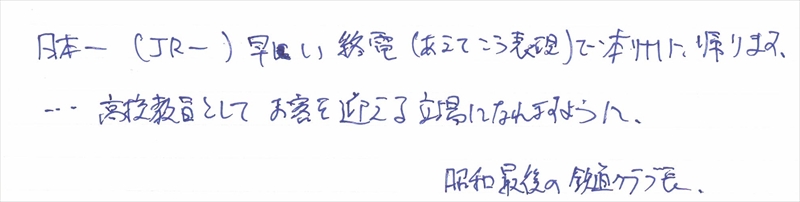 日本一(JR一)早い終電(あえてこう表現)で本州に帰ります。
… 高校教員として お客を迎える立場になれますように。
昭和最後の鉄道クラブ長.